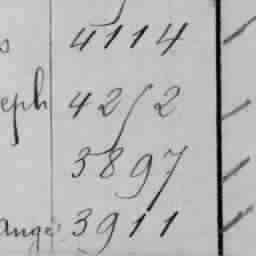 s 4114
eph 4252
3897
ange 3911